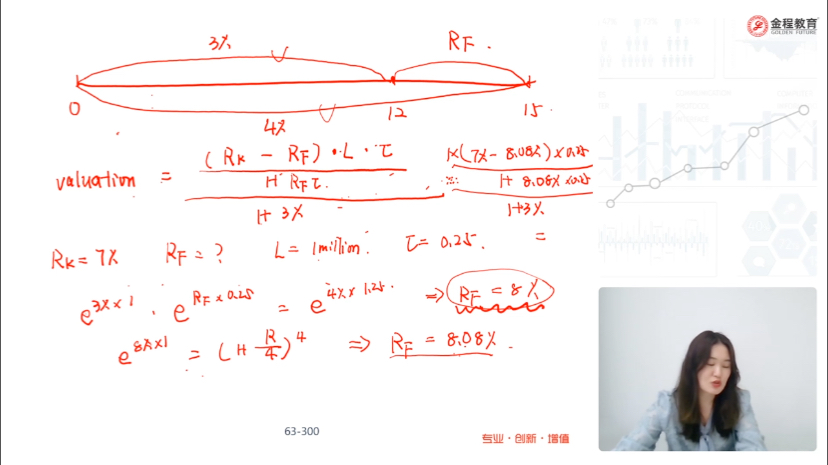 金程教育
GOLDEN FUTURE
3% RF.
0 12 15
4%
valuation = (RK - RF)·L·τ / 1+RFτ / 1+3% 1×(7%-8.08%)×0.25 / 1+8.08%×0.25 / 1+3%
RK=7% RF=? L=1million. τ=0.25. =
e^3%×1 · e^RF×0.25 = e^4%×1.25 ⇒ RF=8%
e^8%×1 = (1+R/4)^4 ⇒ RF=8.08%.
63-300
专业·创新·增值